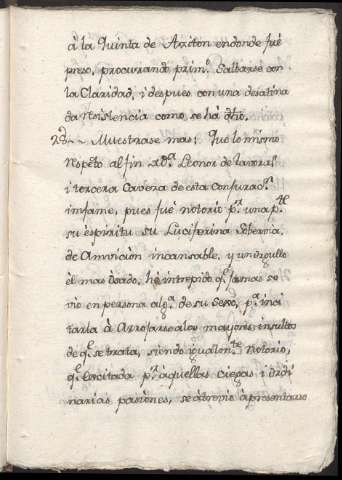 à la Quinta de Axiton endonde fuè
preso, procurando prim.º Saltarse con
la Claridad, i despues con una desatina
da Resistencia como se hà dho.
28 Muestrase mas: Que lo mismo
Respeto al fin a D.ª Leonor de tavora
i tercera Caveza de esta Conjurac.n
infame, pues fuè notorio p.r una p.te
su espiritu su Luciferina Sobervia
de Amvicion incansable, y un orgullo
èl mas osado, hè intrepido q.e Jamas se
viò en persona alg.a de su Sexo, p.a inci
tarla à Arrojarse a los mayores insultos
de q.e se trata, siendo igualm.te Notorio,
q.e Excitada p.r aquellas ciegas i ordi
narias pasiones, se atreviò à presentarse